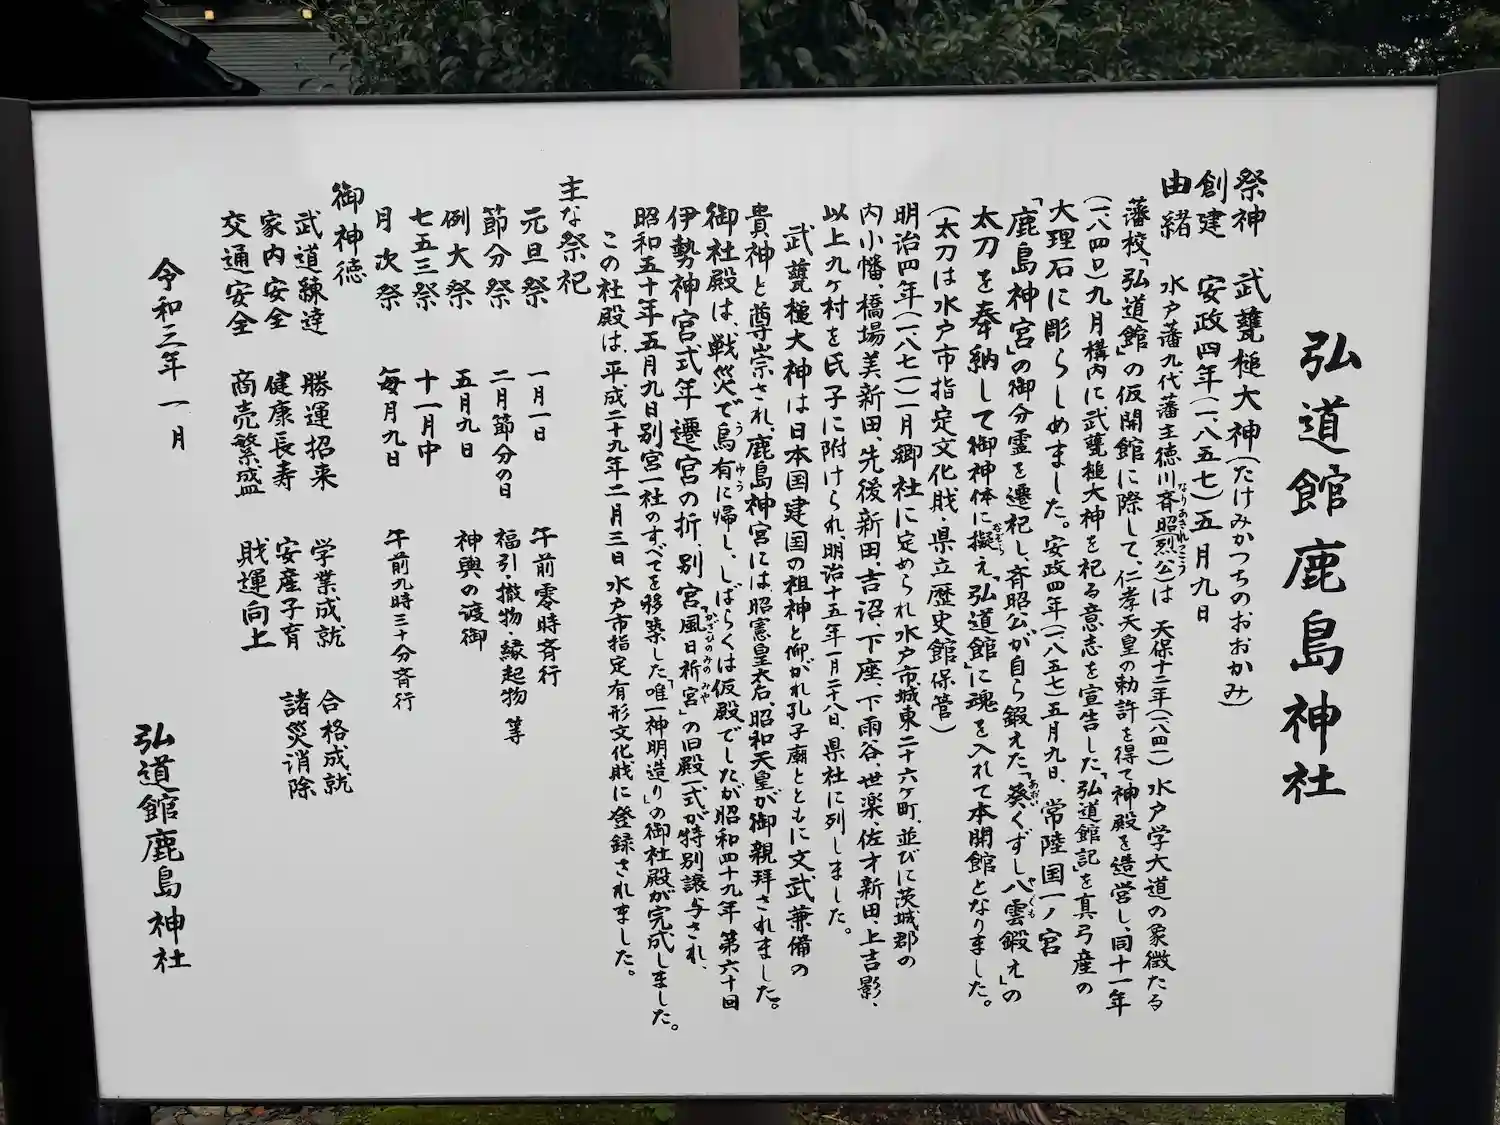 弘道館鹿島神社
祭神　武甕槌大神(たけみかつちのおおかみ)
創建　安政四年(一八五七)五月九日
由緒　水戸藩九代藩主徳川斉昭(烈公)は　天保十二年(一八四一)水戸学大道の象徴たる
藩校「弘道館」の仮開館に際して、仁孝天皇の勅許を得て神殿を造営し、同十一年
(一八四〇)九月構内に武甕槌大神を祀る意志を宣告した「弘道館記」を真弓産の
大理石に彫らしめました。安政四年(一八五七)五月九日、常陸国一ノ宮
「鹿島神宮」の御分霊を遷祀し、斉昭公が自ら鍛えた「葵くずし八雲鍛え」の
太刀を奉納して御神体に擬え「弘道館」に魂を入れて本開館となりました。
(太刀は水戸市指定文化財・県立歴史館保管)
明治四年(一八七一)一月郷社に定められ水戸市城東二十六ヶ町、並びに茨城郡の
内小幡、橋場美新田、先後新田、吉沼、下座、下雨谷、世楽、佐才新田、上吉影、
以上九ヶ村を氏子に附けられ、明治十五年一月二十八日、県社に列しました。
武甕槌大神は日本国建国の祖神と仰がれ孔子廟とともに文武兼備の
貴神と尊崇され、鹿島神宮には昭憲皇太后、昭和天皇が御親拝されました。
御社殿は、戦災で烏有に帰し、しばらくは仮殿でしたが昭和四十九年第六十回
伊勢神宮式年遷宮の折、別宮「風日祈宮」の旧殿一式が特別譲与され、
昭和五十年五月九日別宮一社のすべてを移築した「唯一神明造り」の御社殿が完成しました。
この社殿は、平成二十九年二月三日水戸市指定有形文化財に登録されました。
主な祭祀
元旦祭　一月一日　午前零時斉行
節分祭　二月節分の日　福引・撤物・縁起物等
例大祭　五月九日　神輿の渡御
七五三祭　十一月中
月次祭　毎月九日　午前九時三十分斉行
御神徳
武道練達　勝運招来　学業成就　合格成就
家内安全　健康長寿　安産子育　諸災消除
交通安全　商売繁盛　財運向上
令和三年一月
弘道館鹿島神社